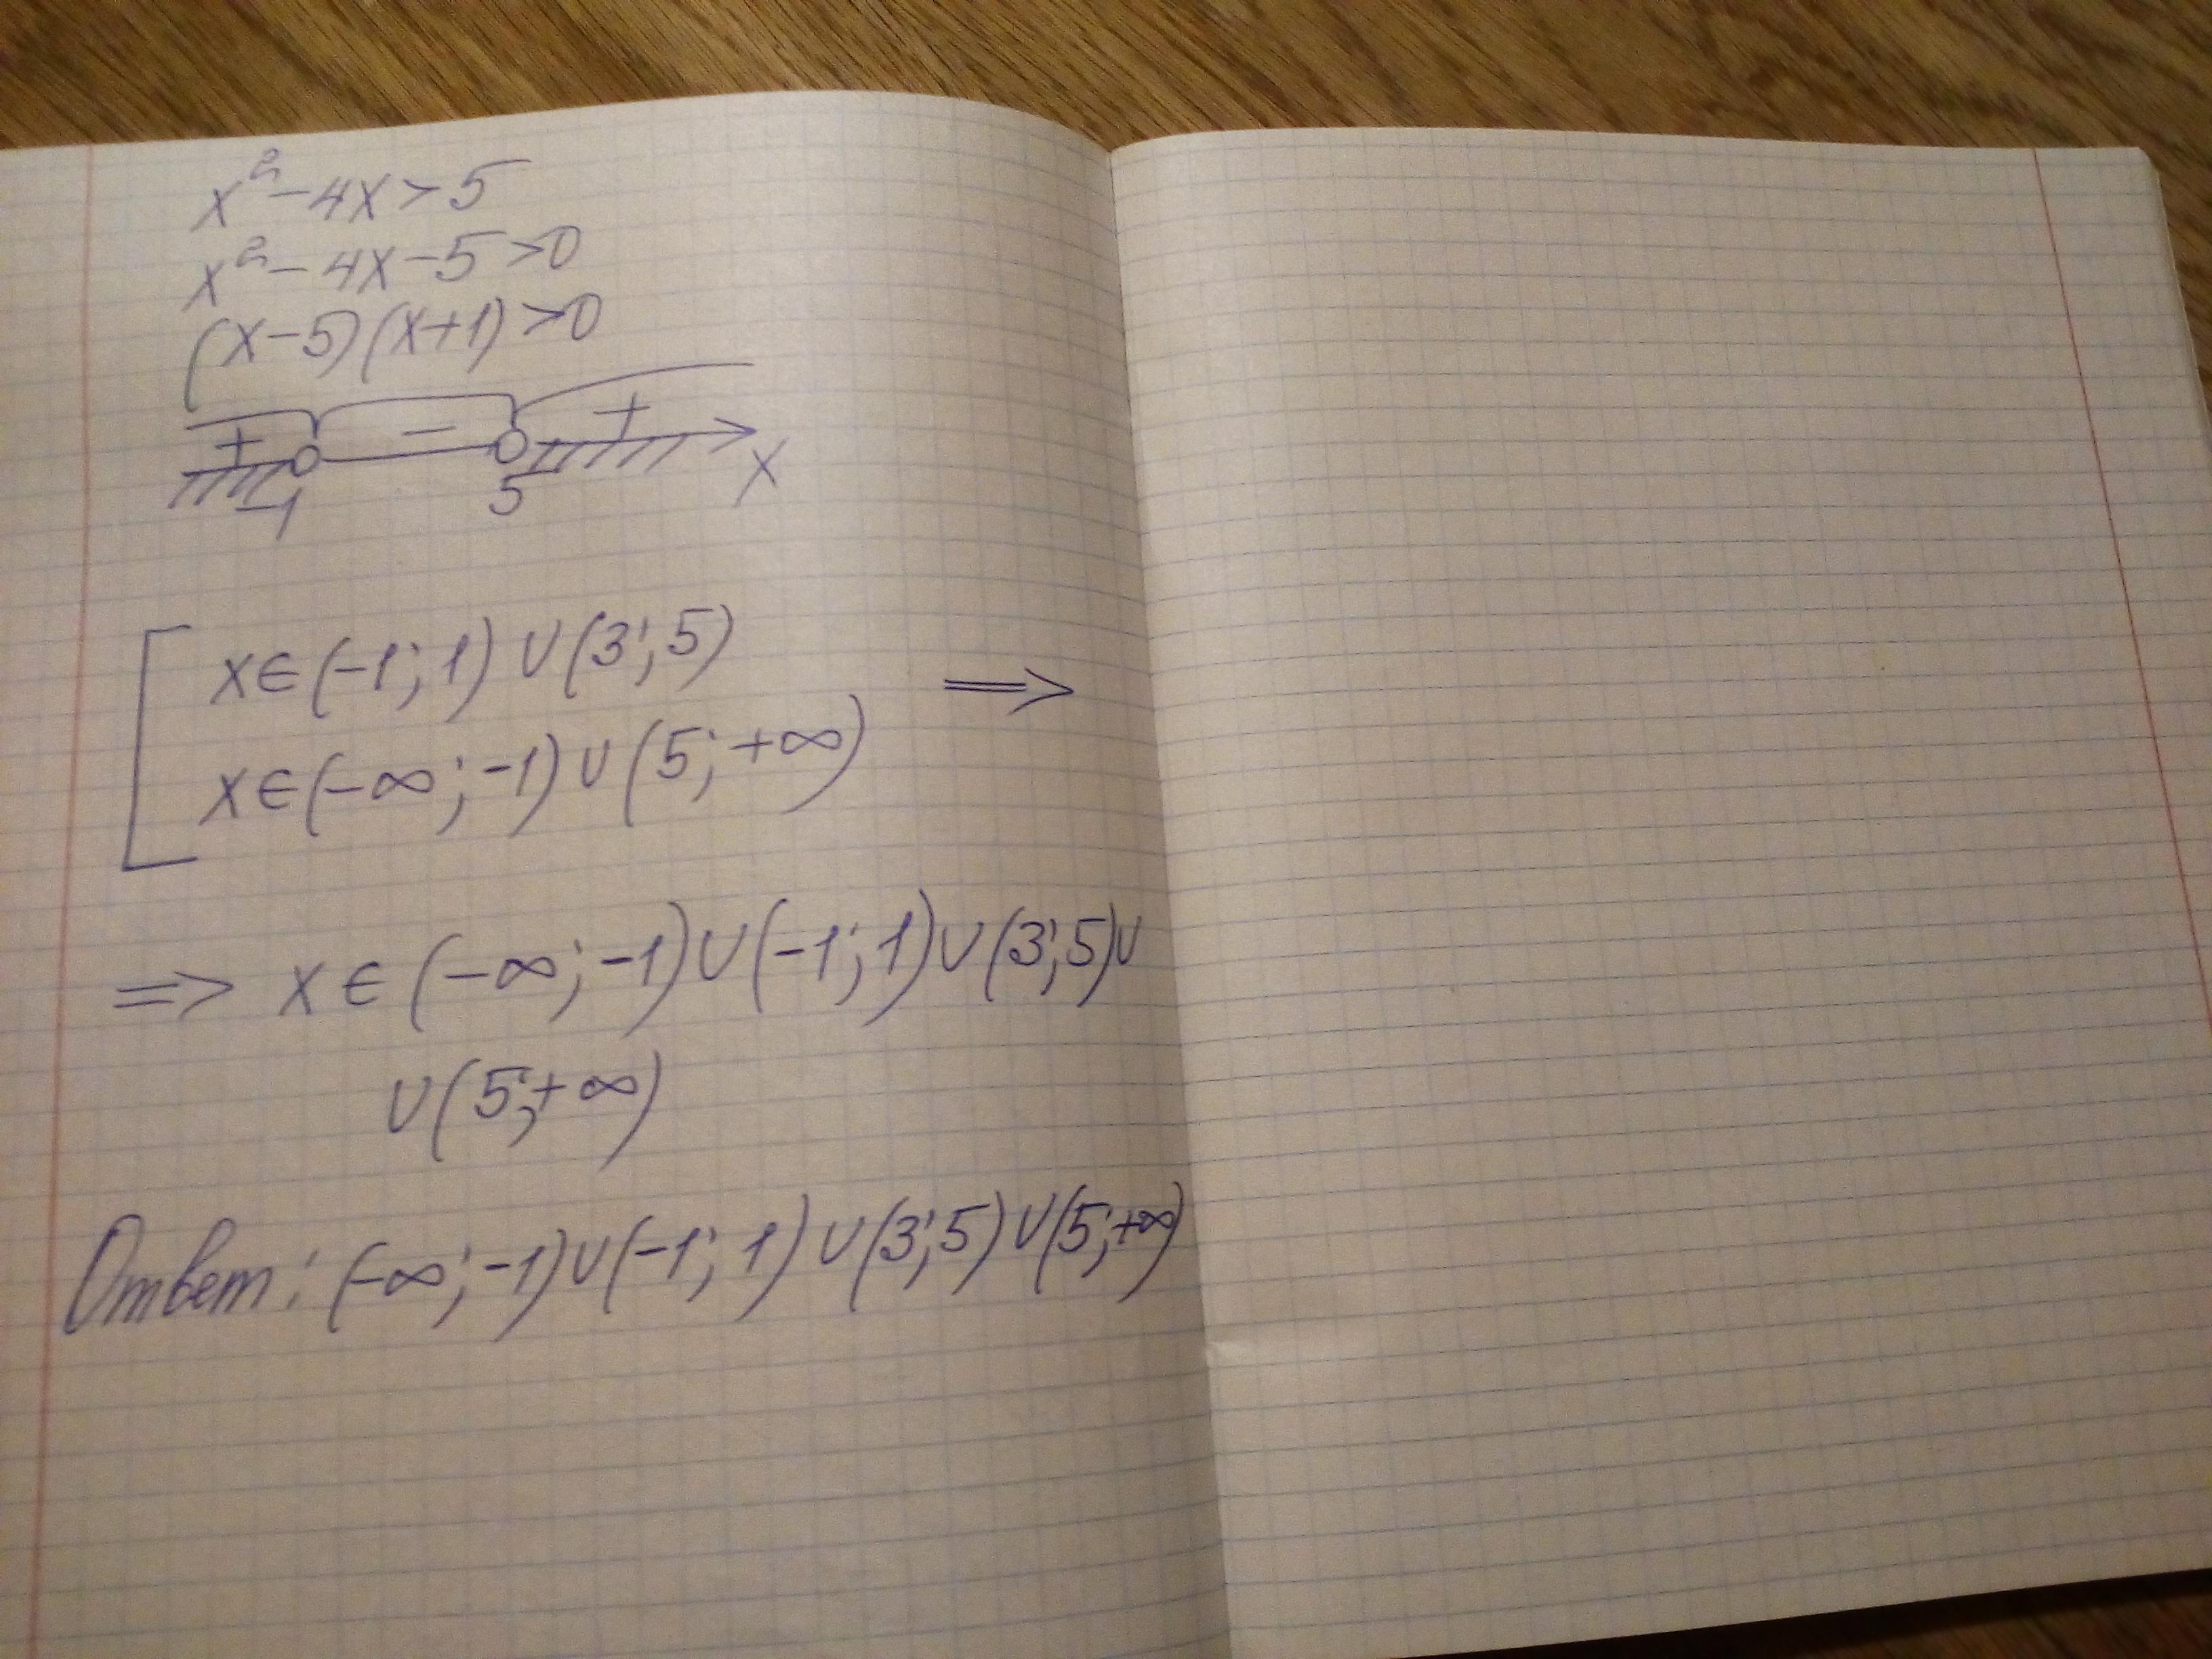 x² - 4x > 5
x² - 4x - 5 > 0
(x-5)(x+1) > 0
+ - +
-1 5 x
[ x ∈ (-1; 1) ∪ (3; 5)
x ∈ (-∞; -1) ∪ (5; +∞) ⟹
=> x ∈ (-∞; -1) ∪ (-1; 1) ∪ (3; 5) ∪
∪ (5; +∞)
Ответ: (-∞; -1) ∪ (-1; 1) ∪ (3; 5) ∪ (5; +∞)